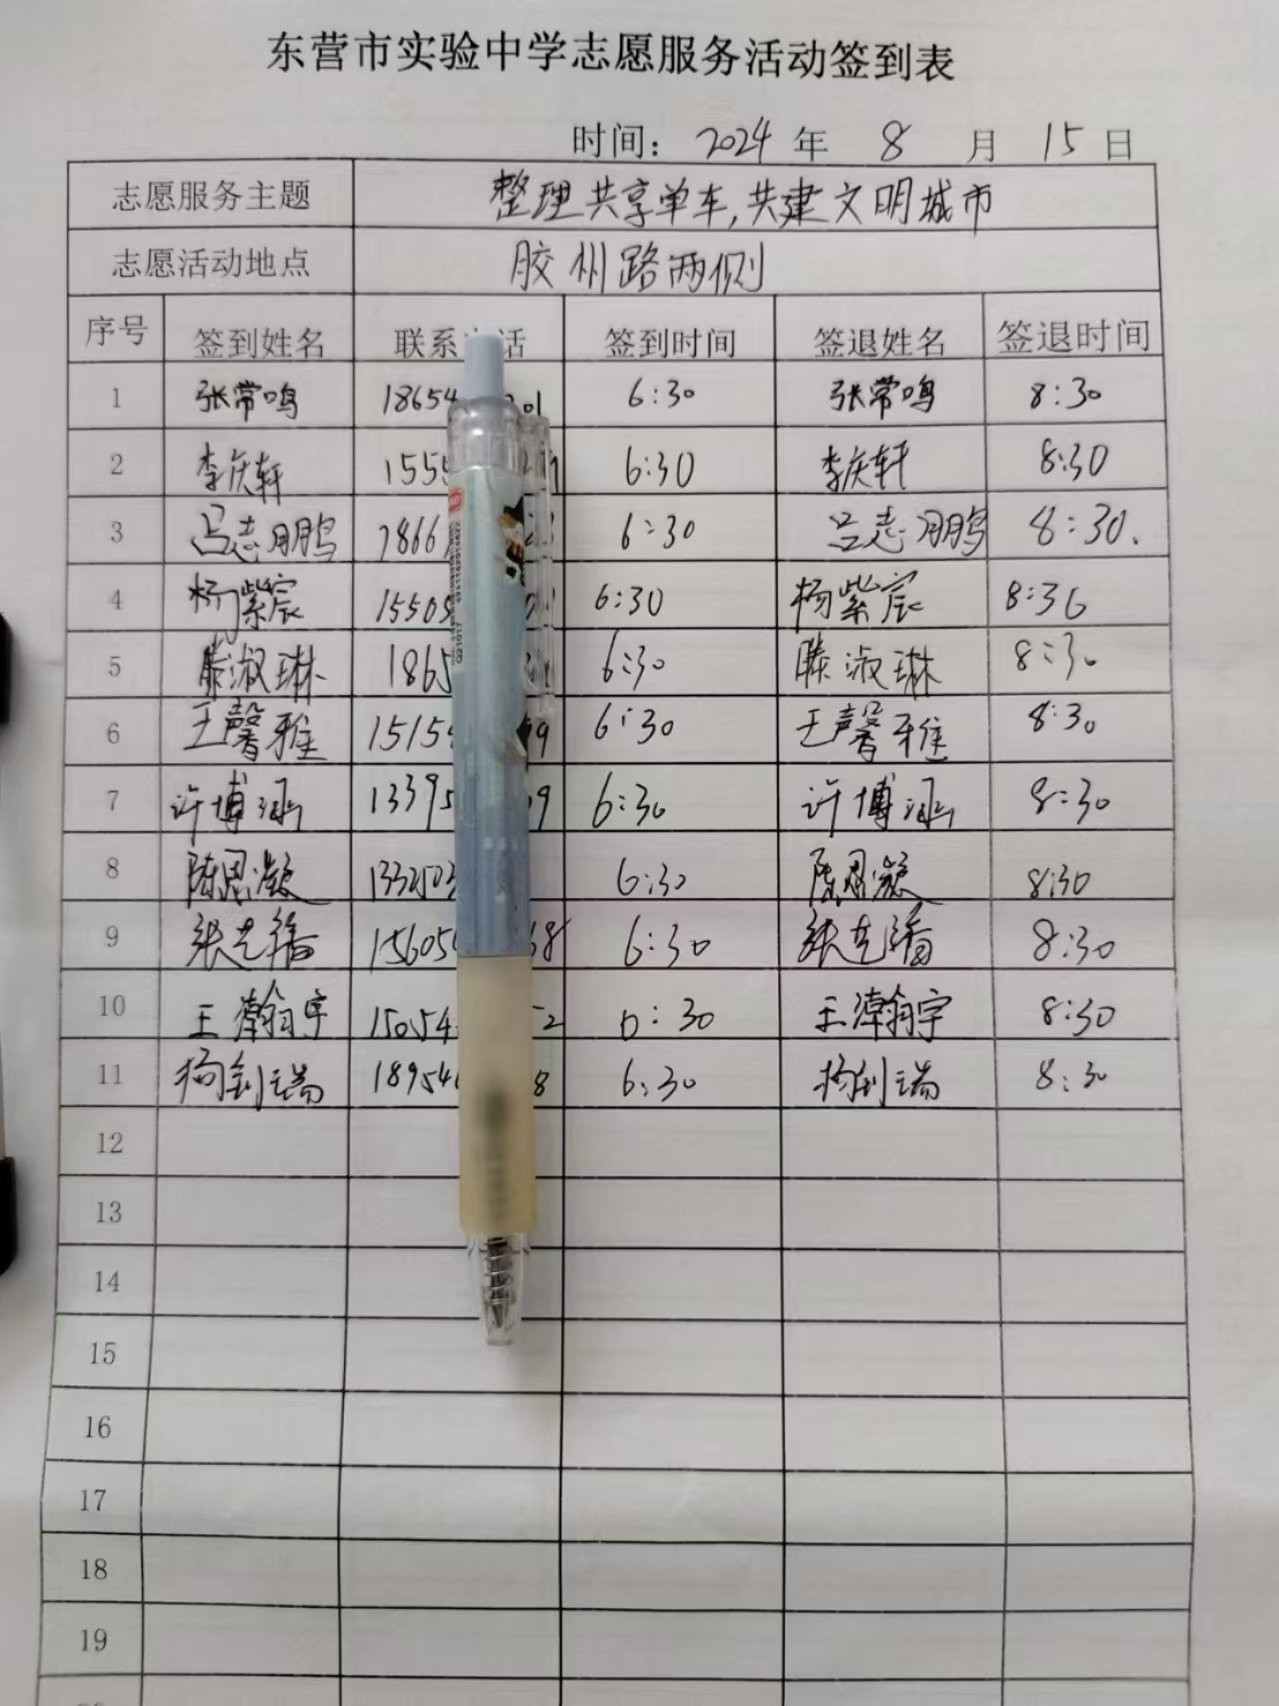 东营市实验中学志愿服务活动签到表
时间：2024年 8 月 15日
志愿服务主题 整理共享单车,共建文明城市
志愿活动地点 胶州路两侧
序号 签到姓名 联系 话 签到时间 签退姓名 签退时间
1 张常鸣 18654 201 6:30 张常鸣 8:30
2 李庆轩 1555 6:30 李庆轩 8:30
3 吕志鹏 7866 6:30 吕志鹏 8:30.
4 杨紫宸 15505 6:30 杨紫宸 8:30
5 滕淑琳 1865 6:30 滕淑琳 8:30
6 王馨雅 1515 99 6:30 王馨雅 8:30
7 许博涵 13395 9 6:30 许博涵 8:30
8 陈思凝 133503 6:30 陈思凝 8:30
9 张艺 15605 68 6:30 张艺 8:30
10 王瀚宇 15054 52 6:30 王瀚宇 8:30
11 杨 端 18954 8 6:30 杨 端 8:30
12
13
14
15
16
17
18
19